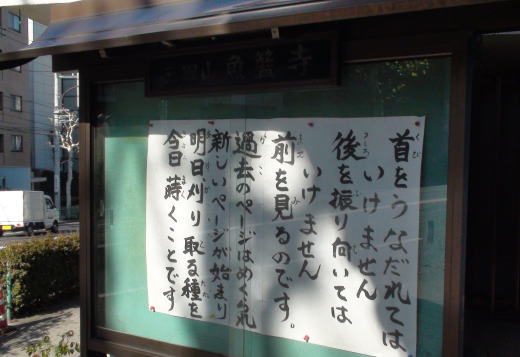 三田山魚籃寺
首をうなだれては
いけません
後を振り向いては
いけません
前を見るのです。
過去のページはめくられ
新しいページが始まり
明日刈り取る種を
今日蒔くことです